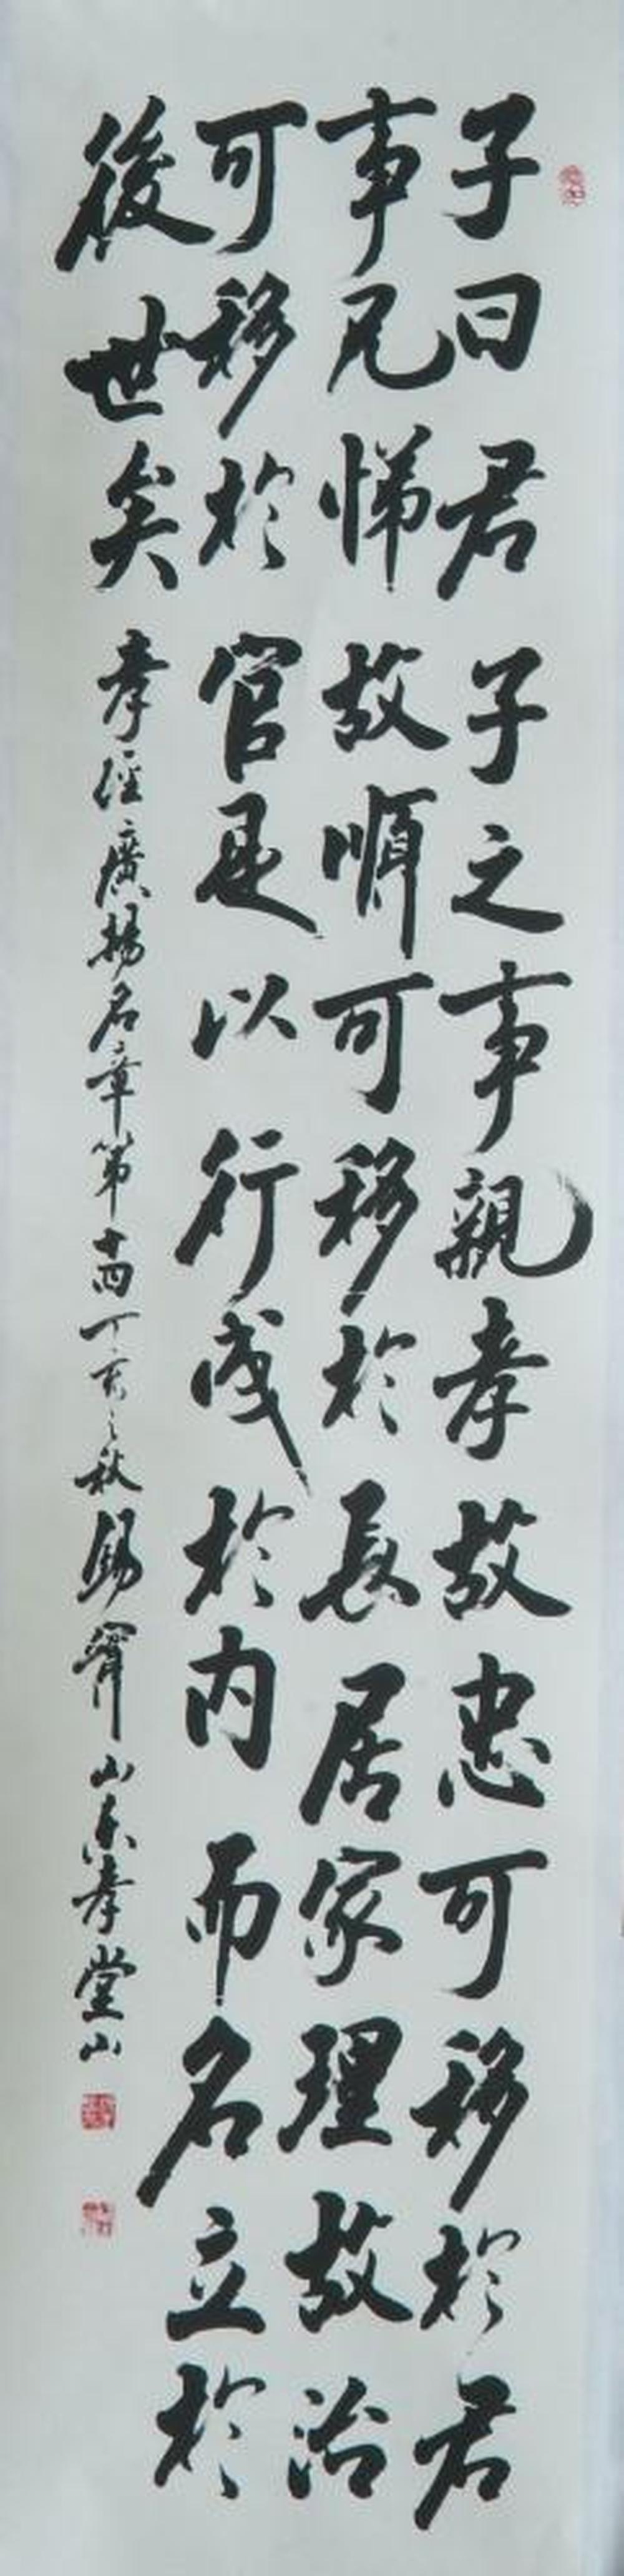 子曰君子之事親孝故忠可移於君
事兄悌故順可移於長居家理故治
可移於官是以行成於内而名立於
後世矣 孝経廣揚名章第十四丁亥之秋錫寧山东孝堂山